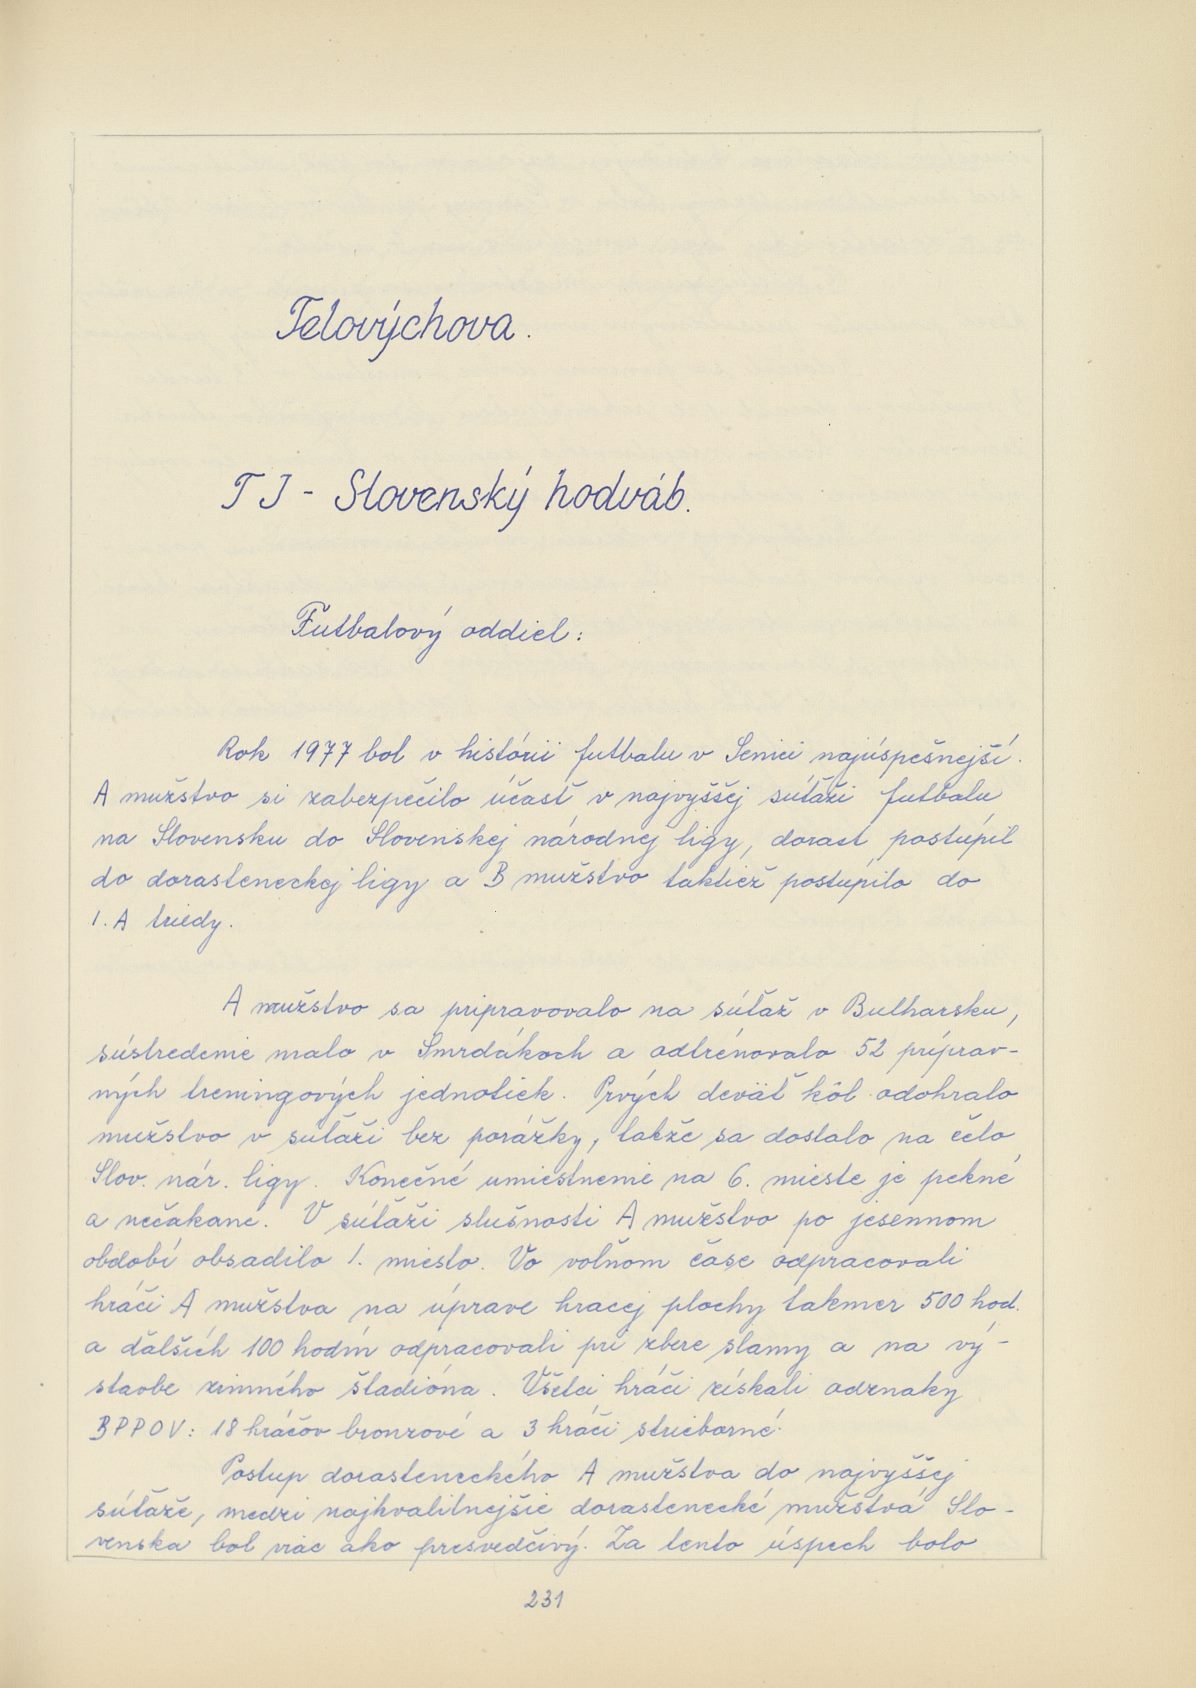 Telovýchova.
TJ - Slovenský hodváb.
Futbalový oddiel:
Rok 1977 bol v histórii futbalu v Senici najúspešnejší.
A mužstvo si zabezpečilo účasť v najvyššej súťaži futbalu
na Slovensku do Slovenskej národnej ligy, dorast postúpil
do dorasteneckej ligy a B mužstvo taktiež postúpilo do
I. A triedy.
A mužstvo sa pripravovalo na súťaž v Bulharsku,
sústredenie malo v Smrdákoch a odtrénovalo 52 príprav-
ných treningových jednotiek. Prvých deväť kôl odohralo
mužstvo v súťaži bez porážky, takže sa dostalo na čelo
Slov. nár. ligy. Konečné umiestnenie na 6. mieste je pekné
a nečakané. V súťaži slušnosti A mužstvo po jesennom
období obsadilo 1. miesto. Vo voľnom čase odpracovali
hráči A mužstva na úprave hracej plochy takmer 500 hod.
a ďalších 100 hodín odpracovali pri zbere slamy a na vý-
stavbe zimného štadióna. Všetci hráči získali odznaky
BPPOV: 18 hráčov bronzové a 3 hráči strieborné.
Postup dorasteneckého A mužstva do najvyššej
súťaže, medzi najkvalitnejšie dorastenecké mužstvá Slo-
venska bol viac ako presvedčivý. Za tento úspech bolo
231